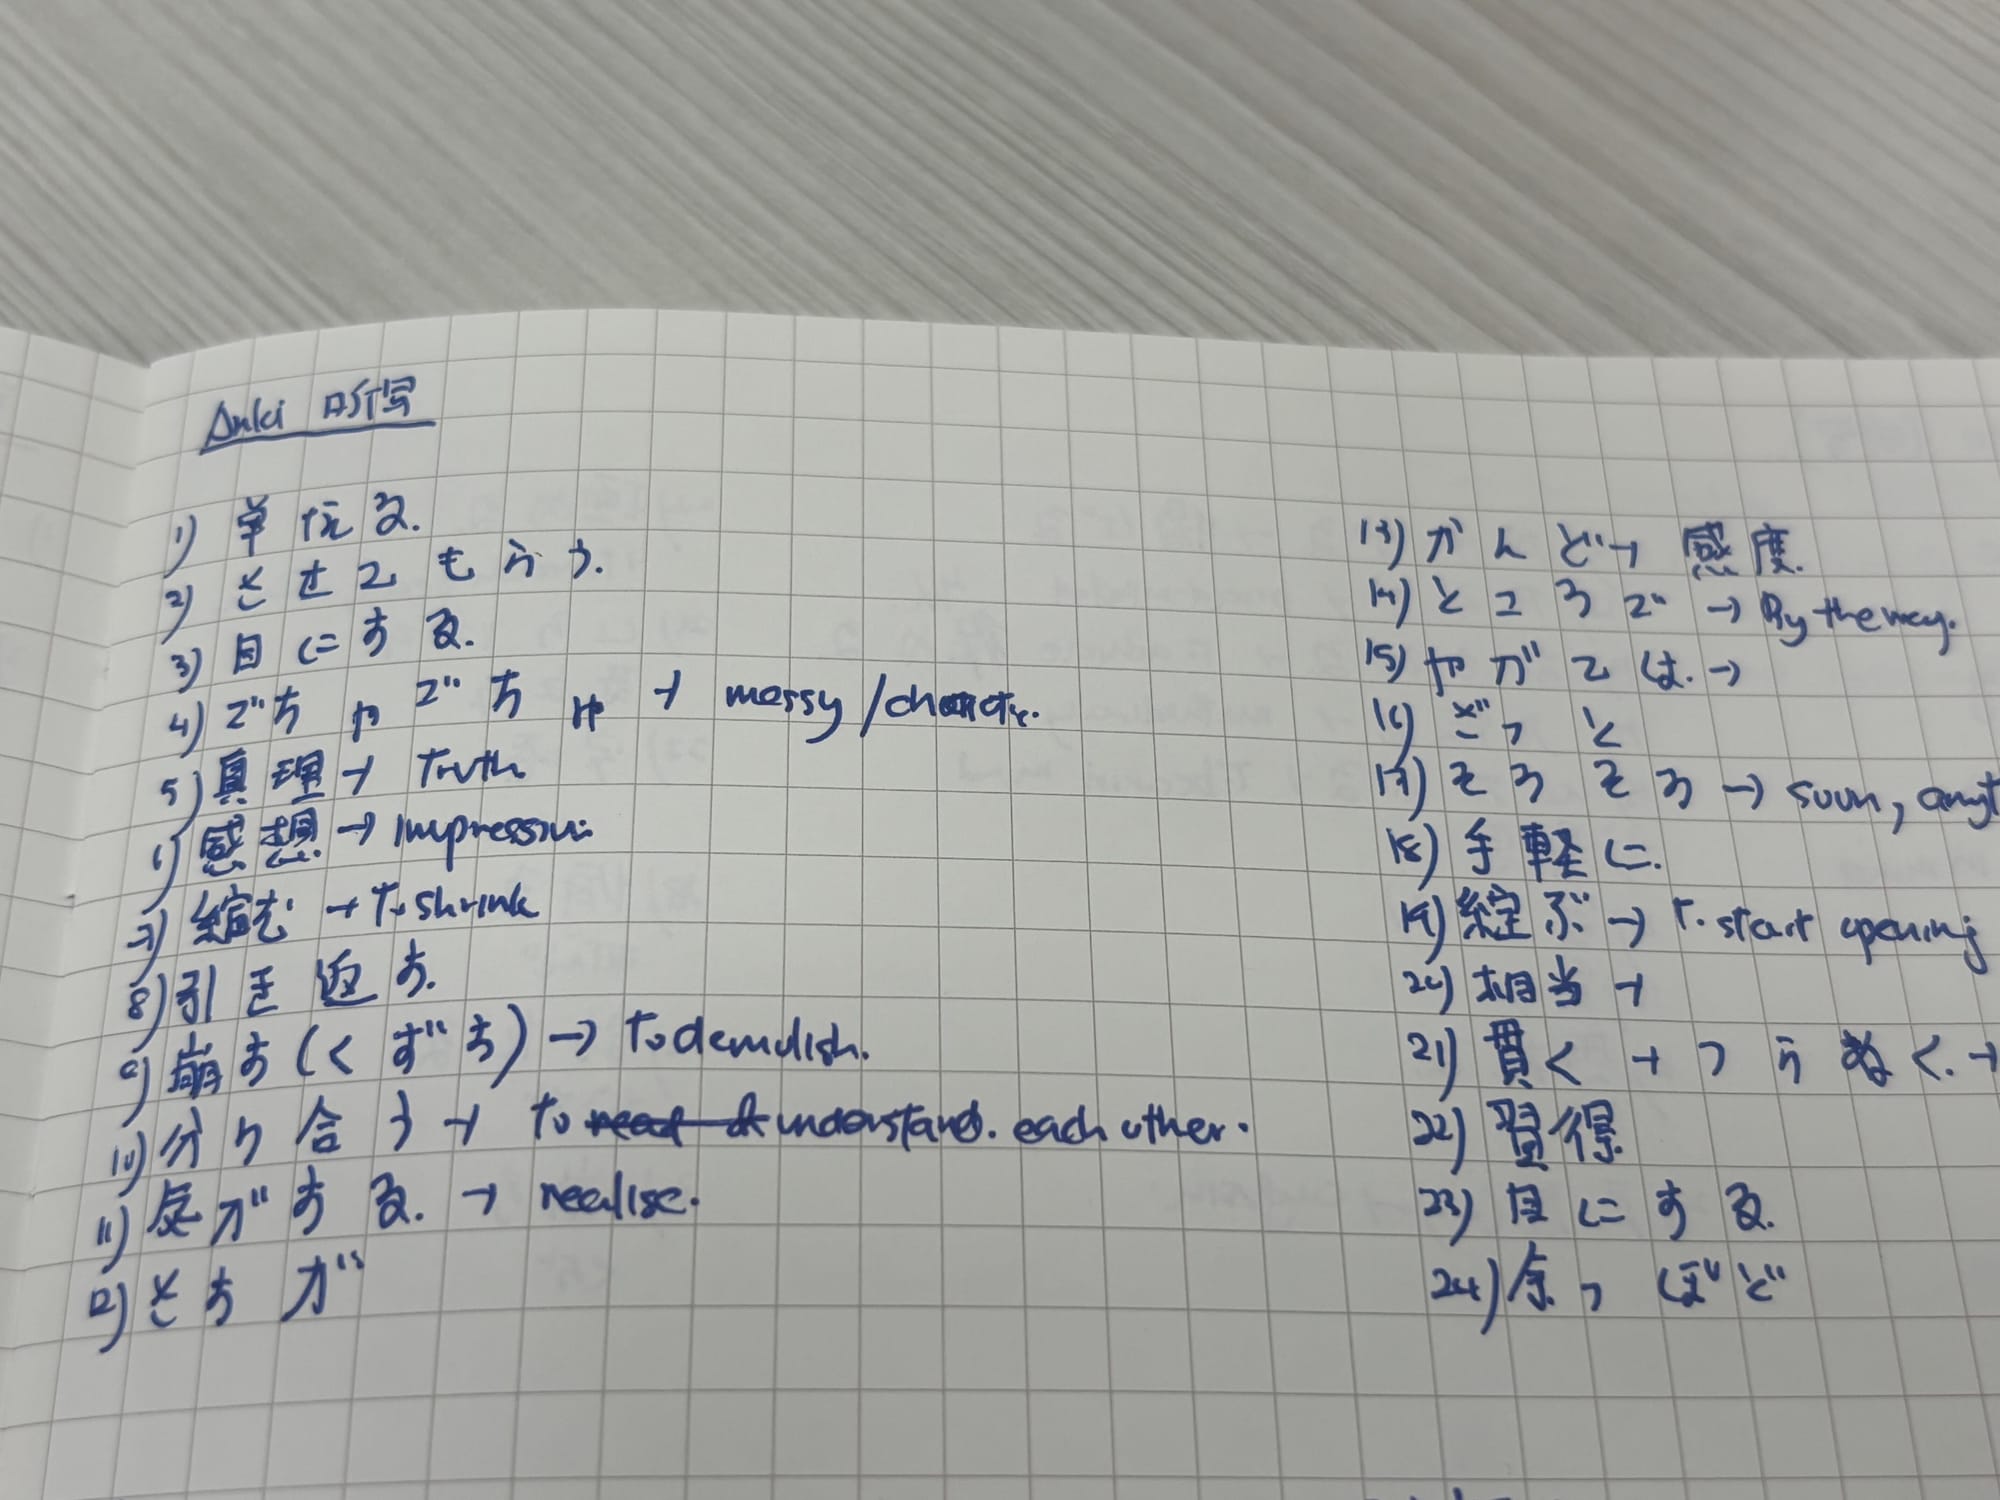 Anki
1) 単位る.
2) させてもらう.
3) 目にする.
4) ごちゃごちゃ → messy / chaotic.
5) 真理 → Truth
6) 感想 → Impression.
7) 縮む → To shrink
8) 引き返す.
9) 崩す (くずす) → To demolish.
10) 分り合う → To understand. each other.
11) 気がする. → realise.
12) さすが
13) かんど → 感度.
14) ところで → By the way.
15) やがては. →
16) ざっと
17) そろそろ → soon, anyt
18) 手軽に.
19) 綻ぶ → To start opening
20) 相当 →
21) 貫く → つらぬく. →
22) 習得
23) 目にする.
24) 余っぽど